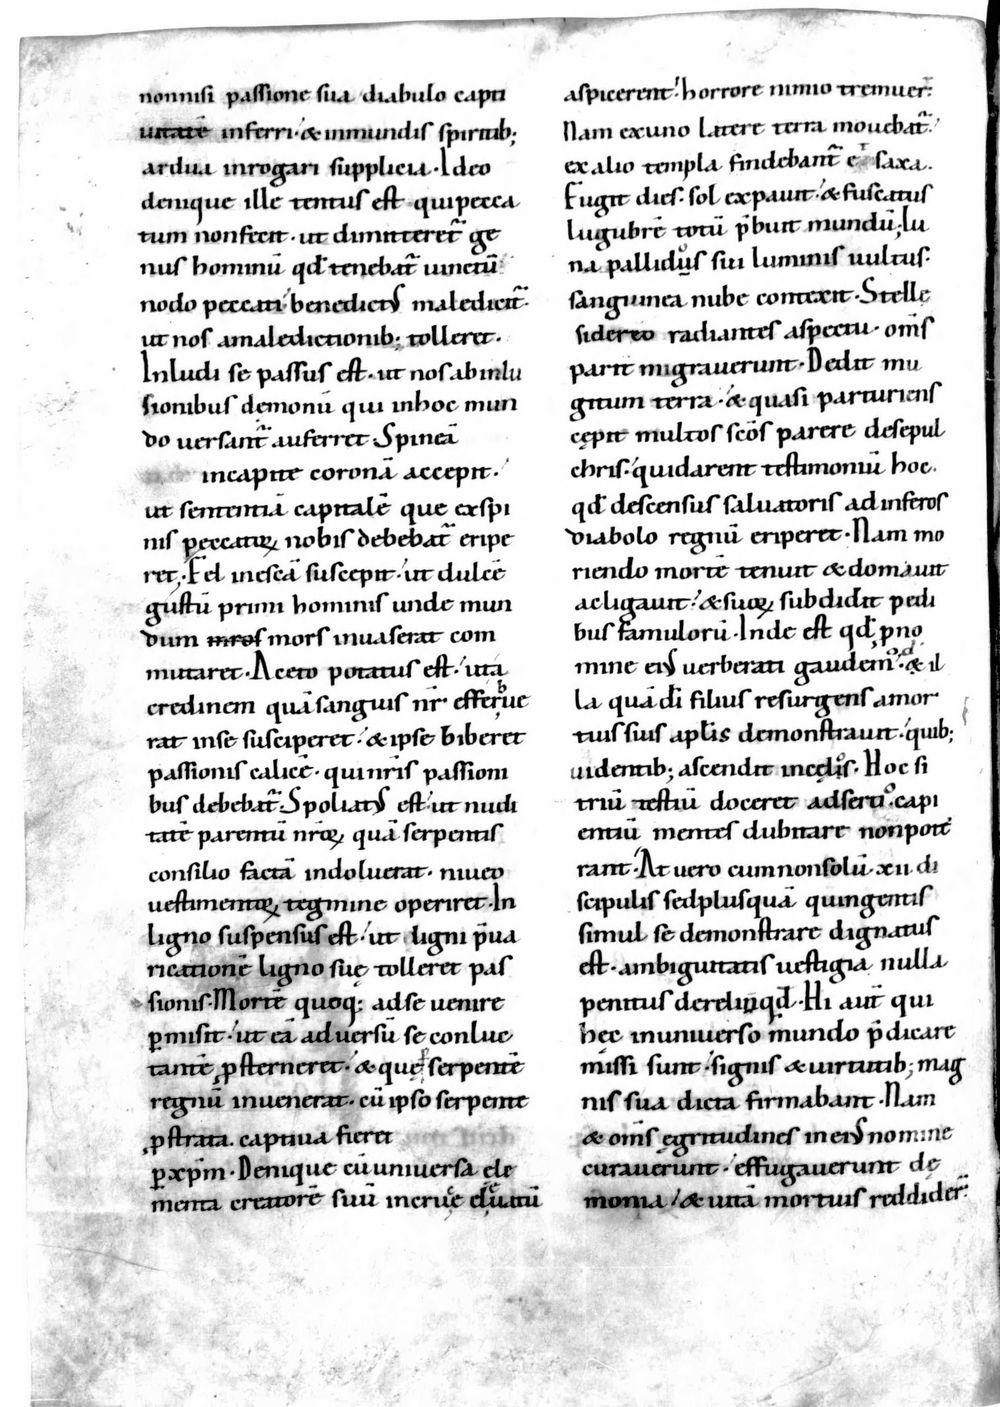 nonnisi passione sua diabolo capti
uitatē inferri· & inmundis spiritib;
ardua inrogari supplicia· Ideo
denique ille tentus est qui pecca
tum non fecit· ut dimitteret̃ ge
nus hominū qđ tenebat̃ uinctū
nodo peccati· benedict᛫ maledicit̃·
ut nos amaledictionib; tolleret·
Inludi se passus est· ut nos ab inlu
sionibus demonū qui inhoc mun
do uersant̃ auferret Spineā
incapite coronā accepit·
ut sententiā capitalē que exspi
nis peccatoꝝ nobis debebat̃ eripe
ret· Fel inescā suscepit· ut dulcē
gustū primi hominis unde mun
dum mros mors inuaserat com
mutaret· Aceto potatus est· ut a
credinem quā sanguis nr̄ efferbue
rat inse susciperet· & ipse biberet
passionis calicē· qui nr̄is passioni
bus debebat̃· Spoliatꝰ est· ut nudi
tatē parentū nr̄oꝝ quā serpentis
consilio factā indoluerat· niueo
uestimentoꝝ tegmine operiret· In
ligno suspensus est· ut ligni p̄ua
ricationē ligno suę tolleret pas
sionis· Mortē quoq; adse uenire
ꝑmisit· ut eā aduersū se conluc
tantē ꝓsterneret· & quę ꝑ serpentē
regnū inuenerat· cū ipso serpente
ꝓstrata· captiua fieret
ꝑ xp̄m· Denique cū uniuersa ele
menta creatorē suū incruce eleuatū
aspicerent· horrore nimio tremuer̄·
Nam ex uno latere terra mouebat̃·
ex alio templa findebant̃ & saxa·
Fugit dies· sol expauit· & fuscatus
lugubrē totū p̄buit mundū; Lu
na pallidus sui luminis uultus·
sanguinea nube contexit· Stelle
sidereo radiantes aspectu· om̄s
parit migrauerunt· Dedit mu
gitum terra· & quasi parturiens
cępit multos sc̄os parere desepul
chris· qui darent testimoniū hoc·
qđ descensus saluatoris ad inferos
diabolo regnū eriperet· Nam mo
riendo mortē tenuit & domauit
ac ligauit· & suoꝝ subdidit pedi
bus famulorū· Inde est qđ ꝓ no
mine eiꝰ uerberati gaudent· & il
la quā dī filius resurgens amor
tuis suis apl̄is demonstrauit· quib;
uidentib; ascendit incęlos· Hoc si
triū testiū doceret adsertio· capi
entiū mentes dubitare non pote
rant· At uero cum non solū· xii· di
scipulis sed plusquā quingentis
simul se demonstrare dignatus
est· ambiguitatis uestigia nulla
penitus derelinqđ· Hi aut̄ qui
hec inuniuerso mundo p̄dicare
missi sunt· signis & uirtutib; mag
nis sua dicta firmabant· Nam
& om̄s ęgritudines in eiꝰ nomine
curauerunt· effugauerunt dę
monia· & uitā mortuis reddider̄·